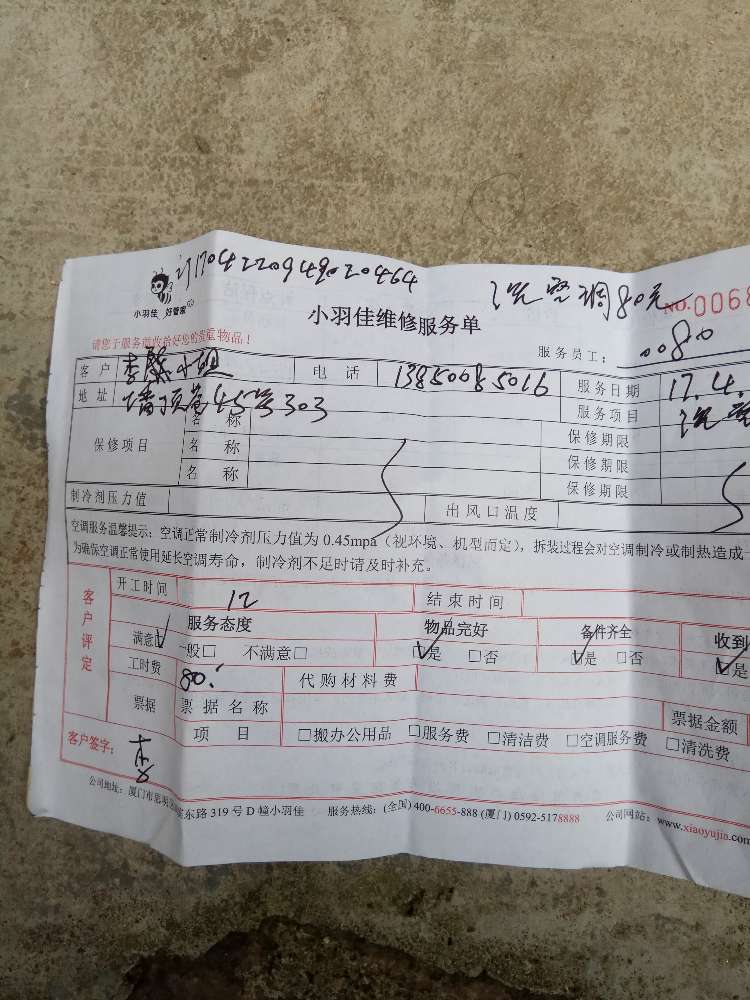 订1704220949020464
洗空调80元
小羽佳 好管家
小羽佳维修服务单
NO.0068
请您于服务前收拾好您的贵重物品!
服务员工: 0080
客户 李 小姐 电话 13850085016 服务日期 17.4.
地址 墙顶巷45号303 服务项目 洗空
保修项目 名称 保修期限
名称 保修期限
名称 保修期限
制冷剂压力值 出风口温度
空调服务温馨提示: 空调正常制冷剂压力值为 0.45mpa (视环境、机型而定), 拆装过程会对空调制冷或制热造成一
为确保空调正常使用延长空调寿命, 制冷剂不足时请及时补充。
客户评定
开工时间 12 结束时间
服务态度 物品完好 备件齐全 收到
满意☑ 一般□ 不满意□ ☑是 □否 ☑是 □否 ☑是
工时费 80. 代购材料费
票据 票据名称 票据金额
项目 □搬办公用品 □服务费 □清洁费 □空调服务费 □清洗费
客户签字: 李
公司地址: 厦门市思明 东路 319 号 D 幢小羽佳 服务热线: (全国) 400-6655-888 (厦门) 0592-5178888 公司网站: www.xiaoyujia.com